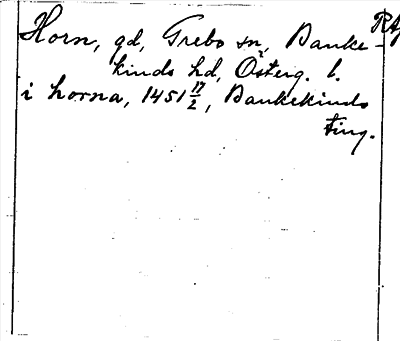 Horn, gd, Grebo sn, Banke-
RA
kinds hd, Österg. l.
i horna, 1451 17/2, Bankekinds
ting.